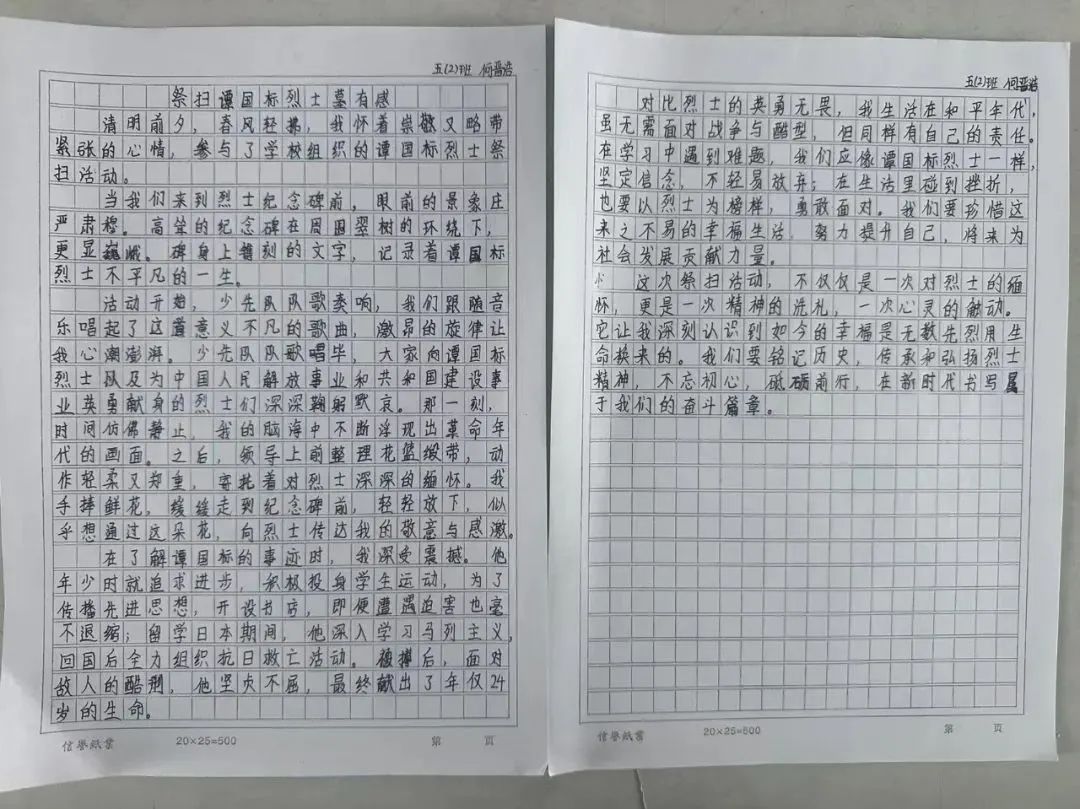 五(2)班 何晋浩
祭扫谭国标烈士墓有感
清明前夕，春风轻拂，我怀着崇敬又略带
紧张的心情，参与了学校组织的谭国标烈士祭
扫活动。
当我们来到烈士纪念碑前，眼前的景象庄
严肃穆。高耸的纪念碑在周围翠树的环绕下，
更显巍峨。碑身上镌刻的文字，记录着谭国标
烈士不平凡的一生。
活动开始，少先队队歌奏响，我们跟随音
乐唱起了这首意义不凡的歌曲，激昂的旋律让
我心潮澎湃。少先队队歌唱毕，大家向谭国标
烈士以及为中国人民解放事业和共和国建设事
业英勇献身的烈士们深深鞠躬默哀。那一刻，
时间仿佛静止，我的脑海中不断浮现出革命年
代的画面。之后，领导上前整理花篮缎带，动
作轻柔又郑重，寄托着对烈士深深的缅怀。我
手捧鲜花，缓缓走到纪念碑前，轻轻放下，似
乎想通过这朵花，向烈士传达我的敬意与感激。
在了解谭国标的事迹时，我深受震撼。他
年少时就追求进步，积极投身学生运动，为了
传播先进思想，开设书店，即便遭遇迫害也毫
不退缩；留学日本期间，他深入学习马列主义，
回国后全力组织抗日救亡活动。被捕后，面对
敌人的酷刑，他坚贞不屈，最终献出了年仅24
岁的生命。
信誉紙業 20×25=500 第 页
五(2)班 何晋浩
对比烈士的英勇无畏，我生活在和平年代，
虽无需面对战争与酷型，但同样有自己的责任。
在学习中遇到难题，我们应像谭国标烈士一样，
坚定信念，不轻易放弃；在生活里碰到挫折，
也要以烈士为榜样，勇敢面对。我们要珍惜这
来之不易的幸福生活，努力提升自己，将来为
社会发展贡献力量。
这次祭扫活动，不仅仅是一次对烈士的缅
怀，更是一次精神的洗礼，一次心灵的触动。
它让我深刻认识到如今的幸福是无数先烈用生
命换来的。我们要铭记历史，传承和弘扬烈士
精神，不忘初心，砥砺前行，在新时代书写属
于我们的奋斗篇章。
信誉紙業 20×25=500 第 页